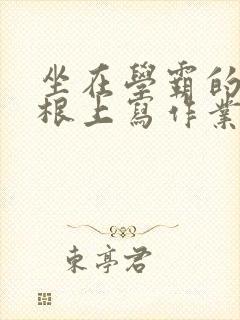 坐在學霸的
根上寫作業
東亭君